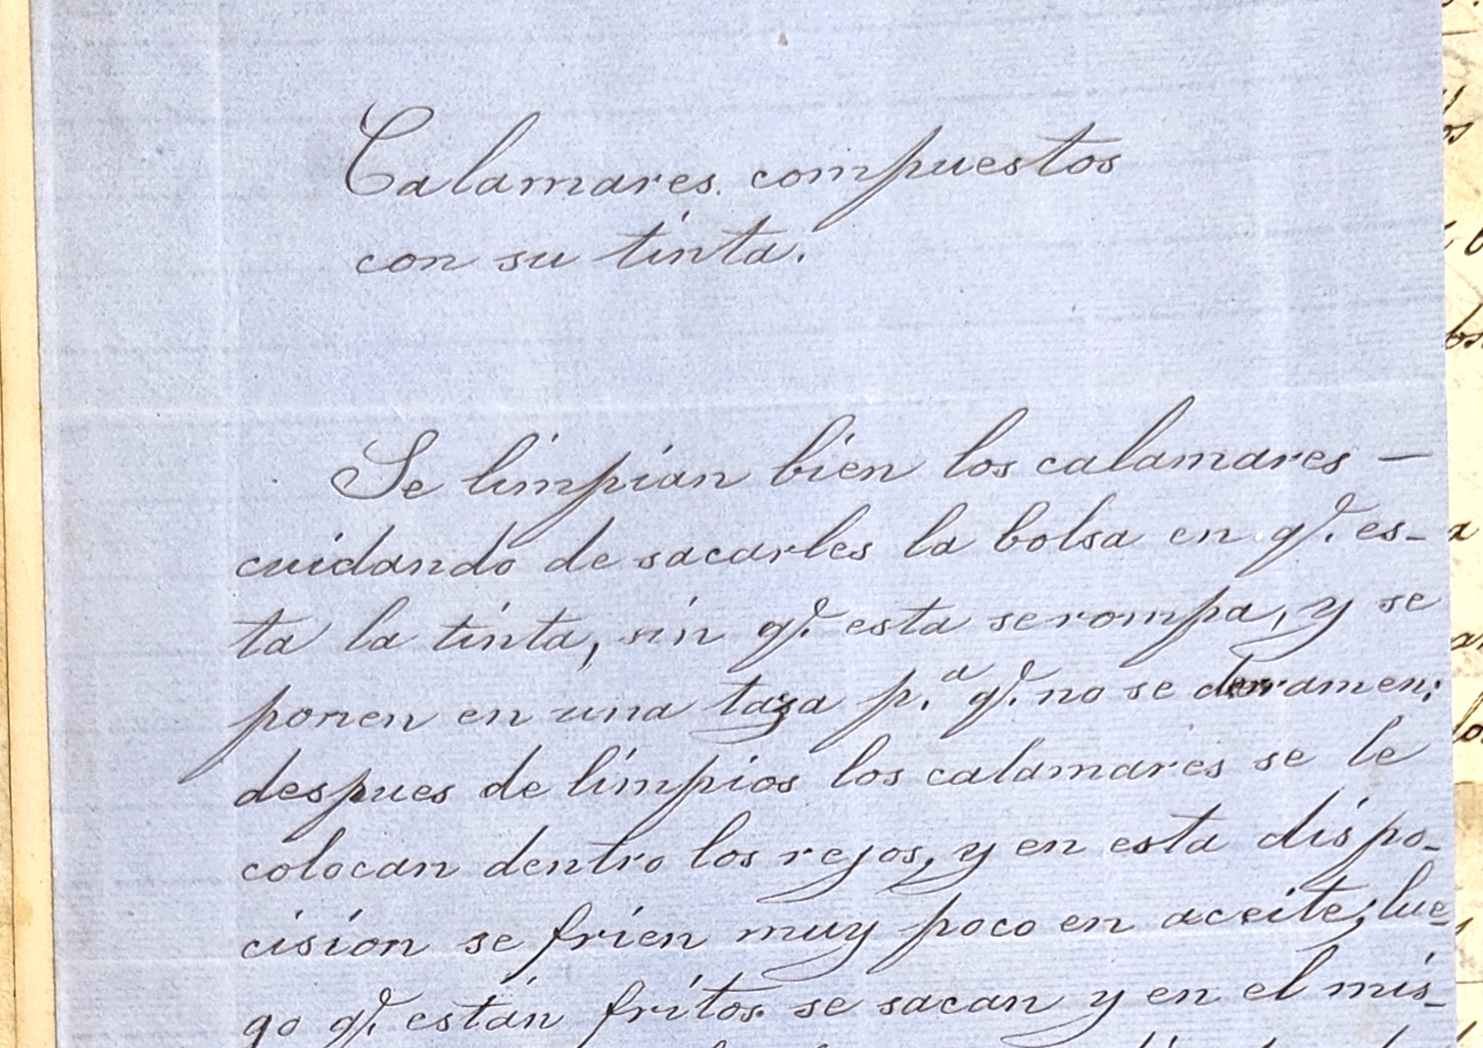 Calamares compuestos
con su tinta.
Se limpian bien los calamares —
cuidando de sacarles la bolsa en q.e es-
ta la tinta, sin q.e esta se rompa, y se
ponen en una taza p.a q.e no se derramen;
despues de limpios los calamares se le
colocan dentro los rejos, y en esta dispo-
cision se frien muy poco en aceite, lue-
go q.e están fritos se sacan y en el mis-